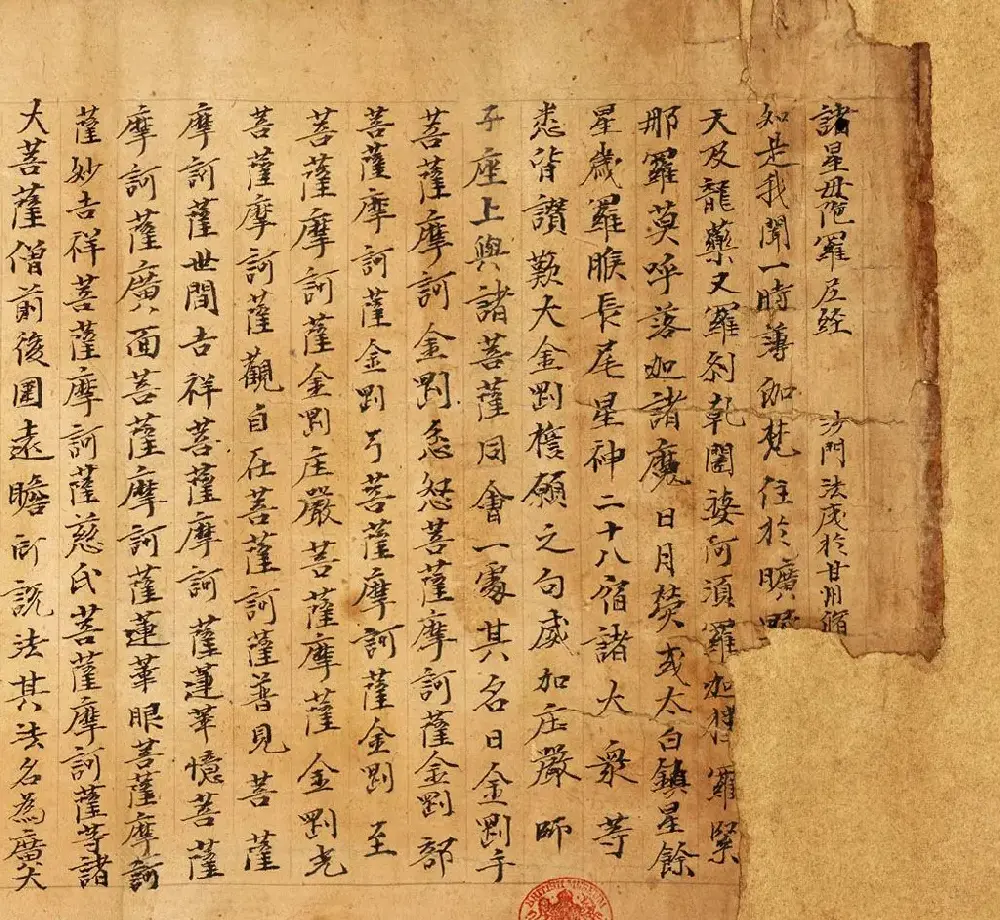 諸星母陁羅尼経 沙門法成於甘州脩
如是我聞一時薄伽梵住於曠野
天及龍藥叉羅刹乹闥婆阿須羅加樓羅緊
那羅莫呼落迦諸魔日月熒或太白鎮星餘
星歲羅睺長尾星神二十八宿諸大衆等
悉皆讃歎大金剛擔願之句威加庄嚴師
子座上與諸菩薩同會一處其名曰金剛手
菩薩摩訶金剛忿怒菩薩摩訶薩金剛部
菩薩摩訶薩金剛弓菩薩摩訶薩金剛至
菩薩摩訶薩金剛庄嚴菩薩摩薩金剛光
菩薩摩訶薩觀自在菩薩訶薩普見菩薩
摩訶薩世間吉祥菩薩摩訶薩蓮華憶菩薩
摩訶薩廣面菩薩摩訶薩蓮華眼菩薩摩訶
薩妙吉祥菩薩摩訶薩慈氏菩薩摩訶薩等諸
大菩薩僧前後圍遶瞻所說法其法名為廣大
BRITISH MUSEUM